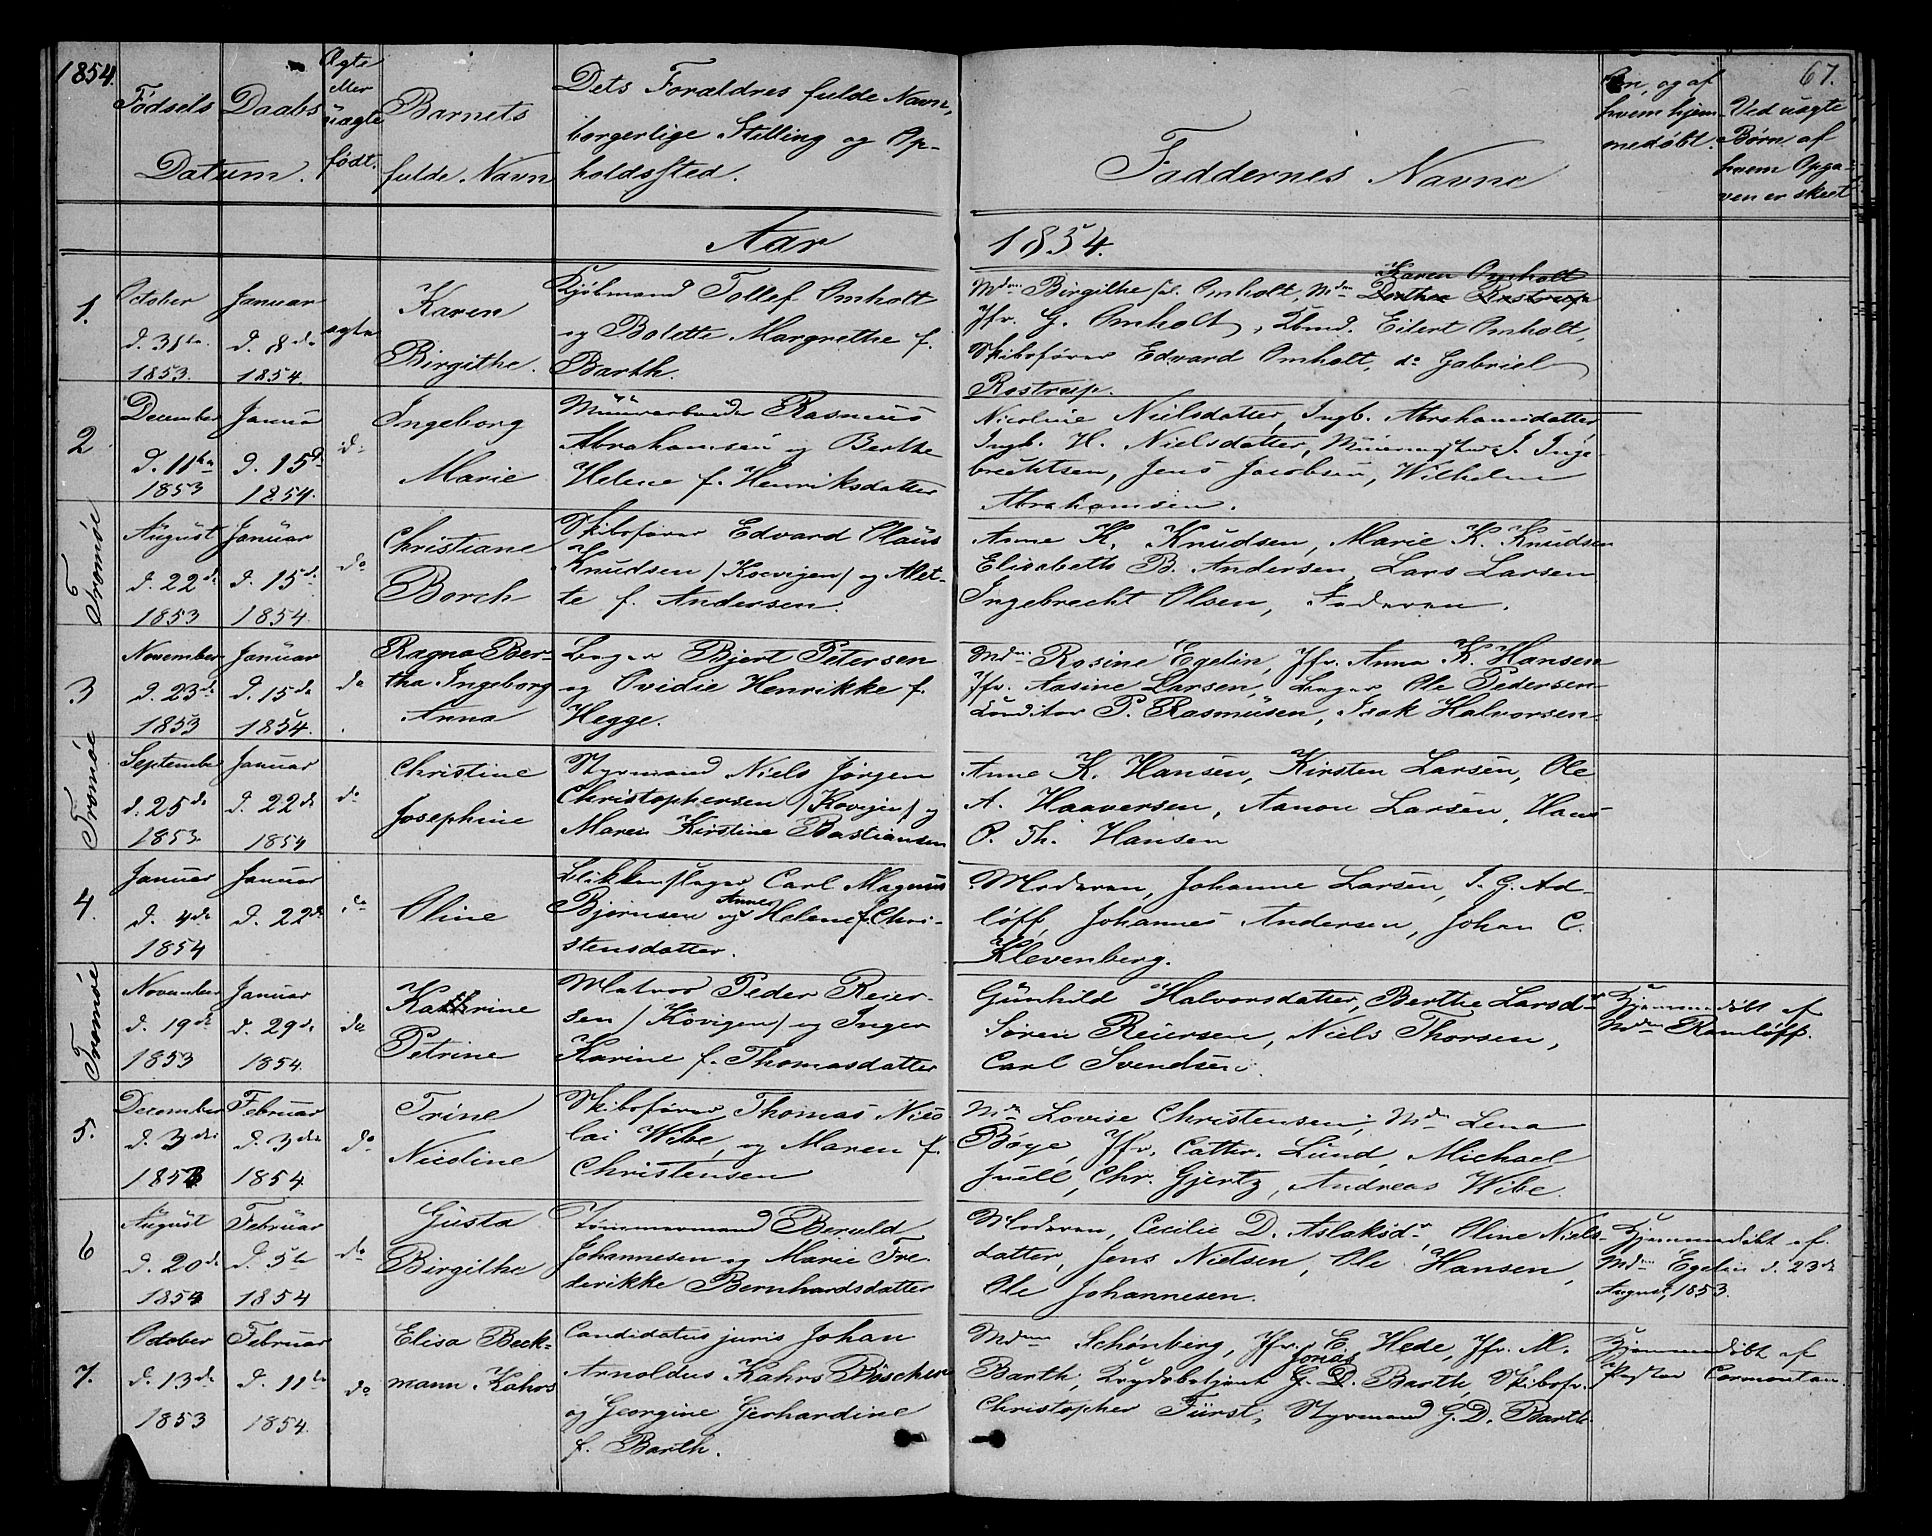 1854.
Fødsels
Daabs
Datum.
Ægte
eller
uægte
født.
Barnets
fulde Navn
Dets Foraldres fulde Navn,
borgerlige Stilling og Op-
holdssted.
Faddernes Navne
Om, og af
hvem hjem-
medøbt.
67.
Ved uagte
Børn, af
hvem Opga-
ven er skeet
Aar
1854.
1.
October
d. 31te
1853.
Januar
d. 8de
1854.
ægte
Karen
Birgithe.
Kjøbmand Tollef Omholt
og Bolette Margrethe f.
Barth.
Karen Omholt
Mdme Birgithe Omholt, Mdm Dorthea Rostrup
Jfr. G. Omholt, Kbmd. Eilert Omholt,
Skibsfører Edvard Omholt, do Gabriel
Rostrup.
2
December
d. 11te
1853
Januar
d. 15de
1854.
do
Ingeborg
Marie
Muurarbeider Rasmus
Abrahamsen og Berthe
Helene f. Henriksdatter
Nicoline Nielsdatter, Ingb. Abrahamsdatter
Ingb. H. Nielsdatter, Muurmester J. Inge-
brechtsen, Jens Jacobsen, Wilhelm
Abrahamsen.
Tromøe
August
d. 22de
1853
Januar
d. 15de
1854.
do
Christiane
Borch
Skibsfører Edvard Olaus
Knudsen / Kocvigen / og Alet-
te f. Andersen.
Anne K. Knudsen, Marie K. Knudsen
Elisabeth B. Andersen, Lars Larsen
Ingebrecht Olsen, Faderen.
3
November
d. 23de
1853
Januar
d. 15de
1854.
do
Ragna Ber-
tha Ingeborg
Anna
Bager Bjert Petersen
og Ovidie Henrikke f.
Hegge.
Mdme Rosine Egelin, Jfr. Anna K. Hansen
Jfr. Aasine Larsen, Bager Ole Pedersen
Conditor P. Rasmusen, Isak Halvorsen
Tromøe
September
d. 25de
1853
Januar
d. 22de
1854
do
Christine
Josephine
Styrmand Niels Jørgen
Christophersen / Kovigen / og
Maren Kirstine Bastiansen
Anne K. Hansen, Kirsten Larsen, Ole
A. Haaversen, Aanon Larsen, Hans
P. Th. Hansen
4.
Januar
d. 4de
1854
Januar
d. 22de
do
Oline
Blikkenslager Carl Magnus
Bjørnsen og Anne Helene f. Chri-
stensdatter.
Moderen, Johanne Larsen, J. G. Ad-
løff, Johannes Andersen, Johan C.
Klevenberg.
Tromøe
November
d. 19de
1853
Januar
d. 29de
1854.
do
Kathrine
Petrine
Matros Peder Reier-
sen / Kovigen / og Inger
Karine f. Thomasdatter
Gunhild Halvorsdatter, Berthe Larsdr
Søren Reiersen, Niels Thorsen,
Carl Svendsen.
Hjemmedøbt af
Mdm Ramløff.
5.
December
d. 3die
1853
Februar
d. 3die
1854
do
Trine
Nicoline
Skibsfører Thomas Nico
lai Wibe, og Maren f.
Christensen
Mdm Lovise Christensen, Mdm Lena
Bøye, Jfr. Cattr. Lund, Michael
Juell, Chr. Gjertz, Andreas Wibe.
6
August
d. 20de
1853
Februar
d. 5te
1854
do
Gusta
Birgithe
Tømmermand Beruld
Johannesen og Marie Fre
derikke Bernhardsdatter
Moderen, Cecilie D. Aslaksdr, Oline Niels-
datter, Jens Nielsen, Ole Hansen,
Ole Johannesen.
Hjemmedøbt af
Mdm Egelin d. 23de
August 1853.
7.
October
d. 13de
1853
Februar
d. 11te
1854.
do
Elisa Beck-
mann Kahrs
Candidatus juris Johan
Arnoldus Kahrs Büscher
og Georgine Gerhardine
f. Barth.
Mdme Schønberg, Jfr. E. Hede, Jfr. M.
Barth, Krydsbetjent Jonas G. D. Barth, Skibsfr.
Christopher Fürst, Styrmand G. D. Barth
Hjemmedøbt af
Pastor Cormontan.